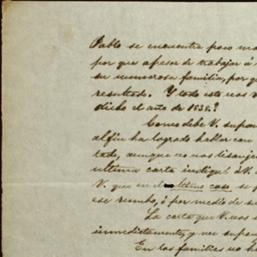 Pablo se encuentra poco
por que apesar de trabajar á
su numerosa familia, por
resultado. Y todo esto nos
dicho el año de 1838?
Como debe V. supon
alfin ha logrado hallar con
tado, aunque no nos
ultima carta
V. que en el ultimo caso, se
ese rumbo, ó por medio de
La carta que V. nos
inmediatamente, y
En las familias no h